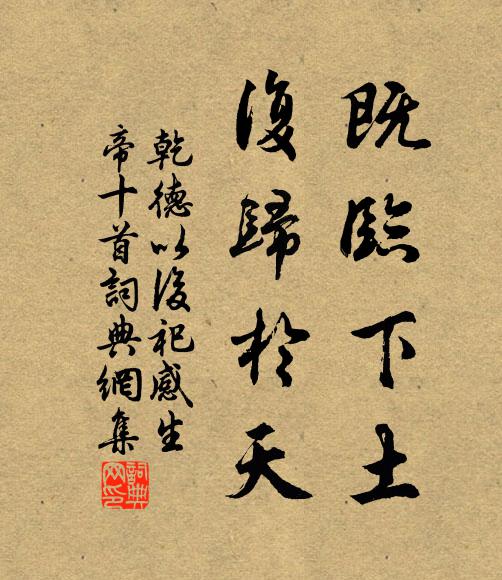 既臨下土
復歸於天
乾德以後祀感生
帝十首詞典網集
詞典
网印